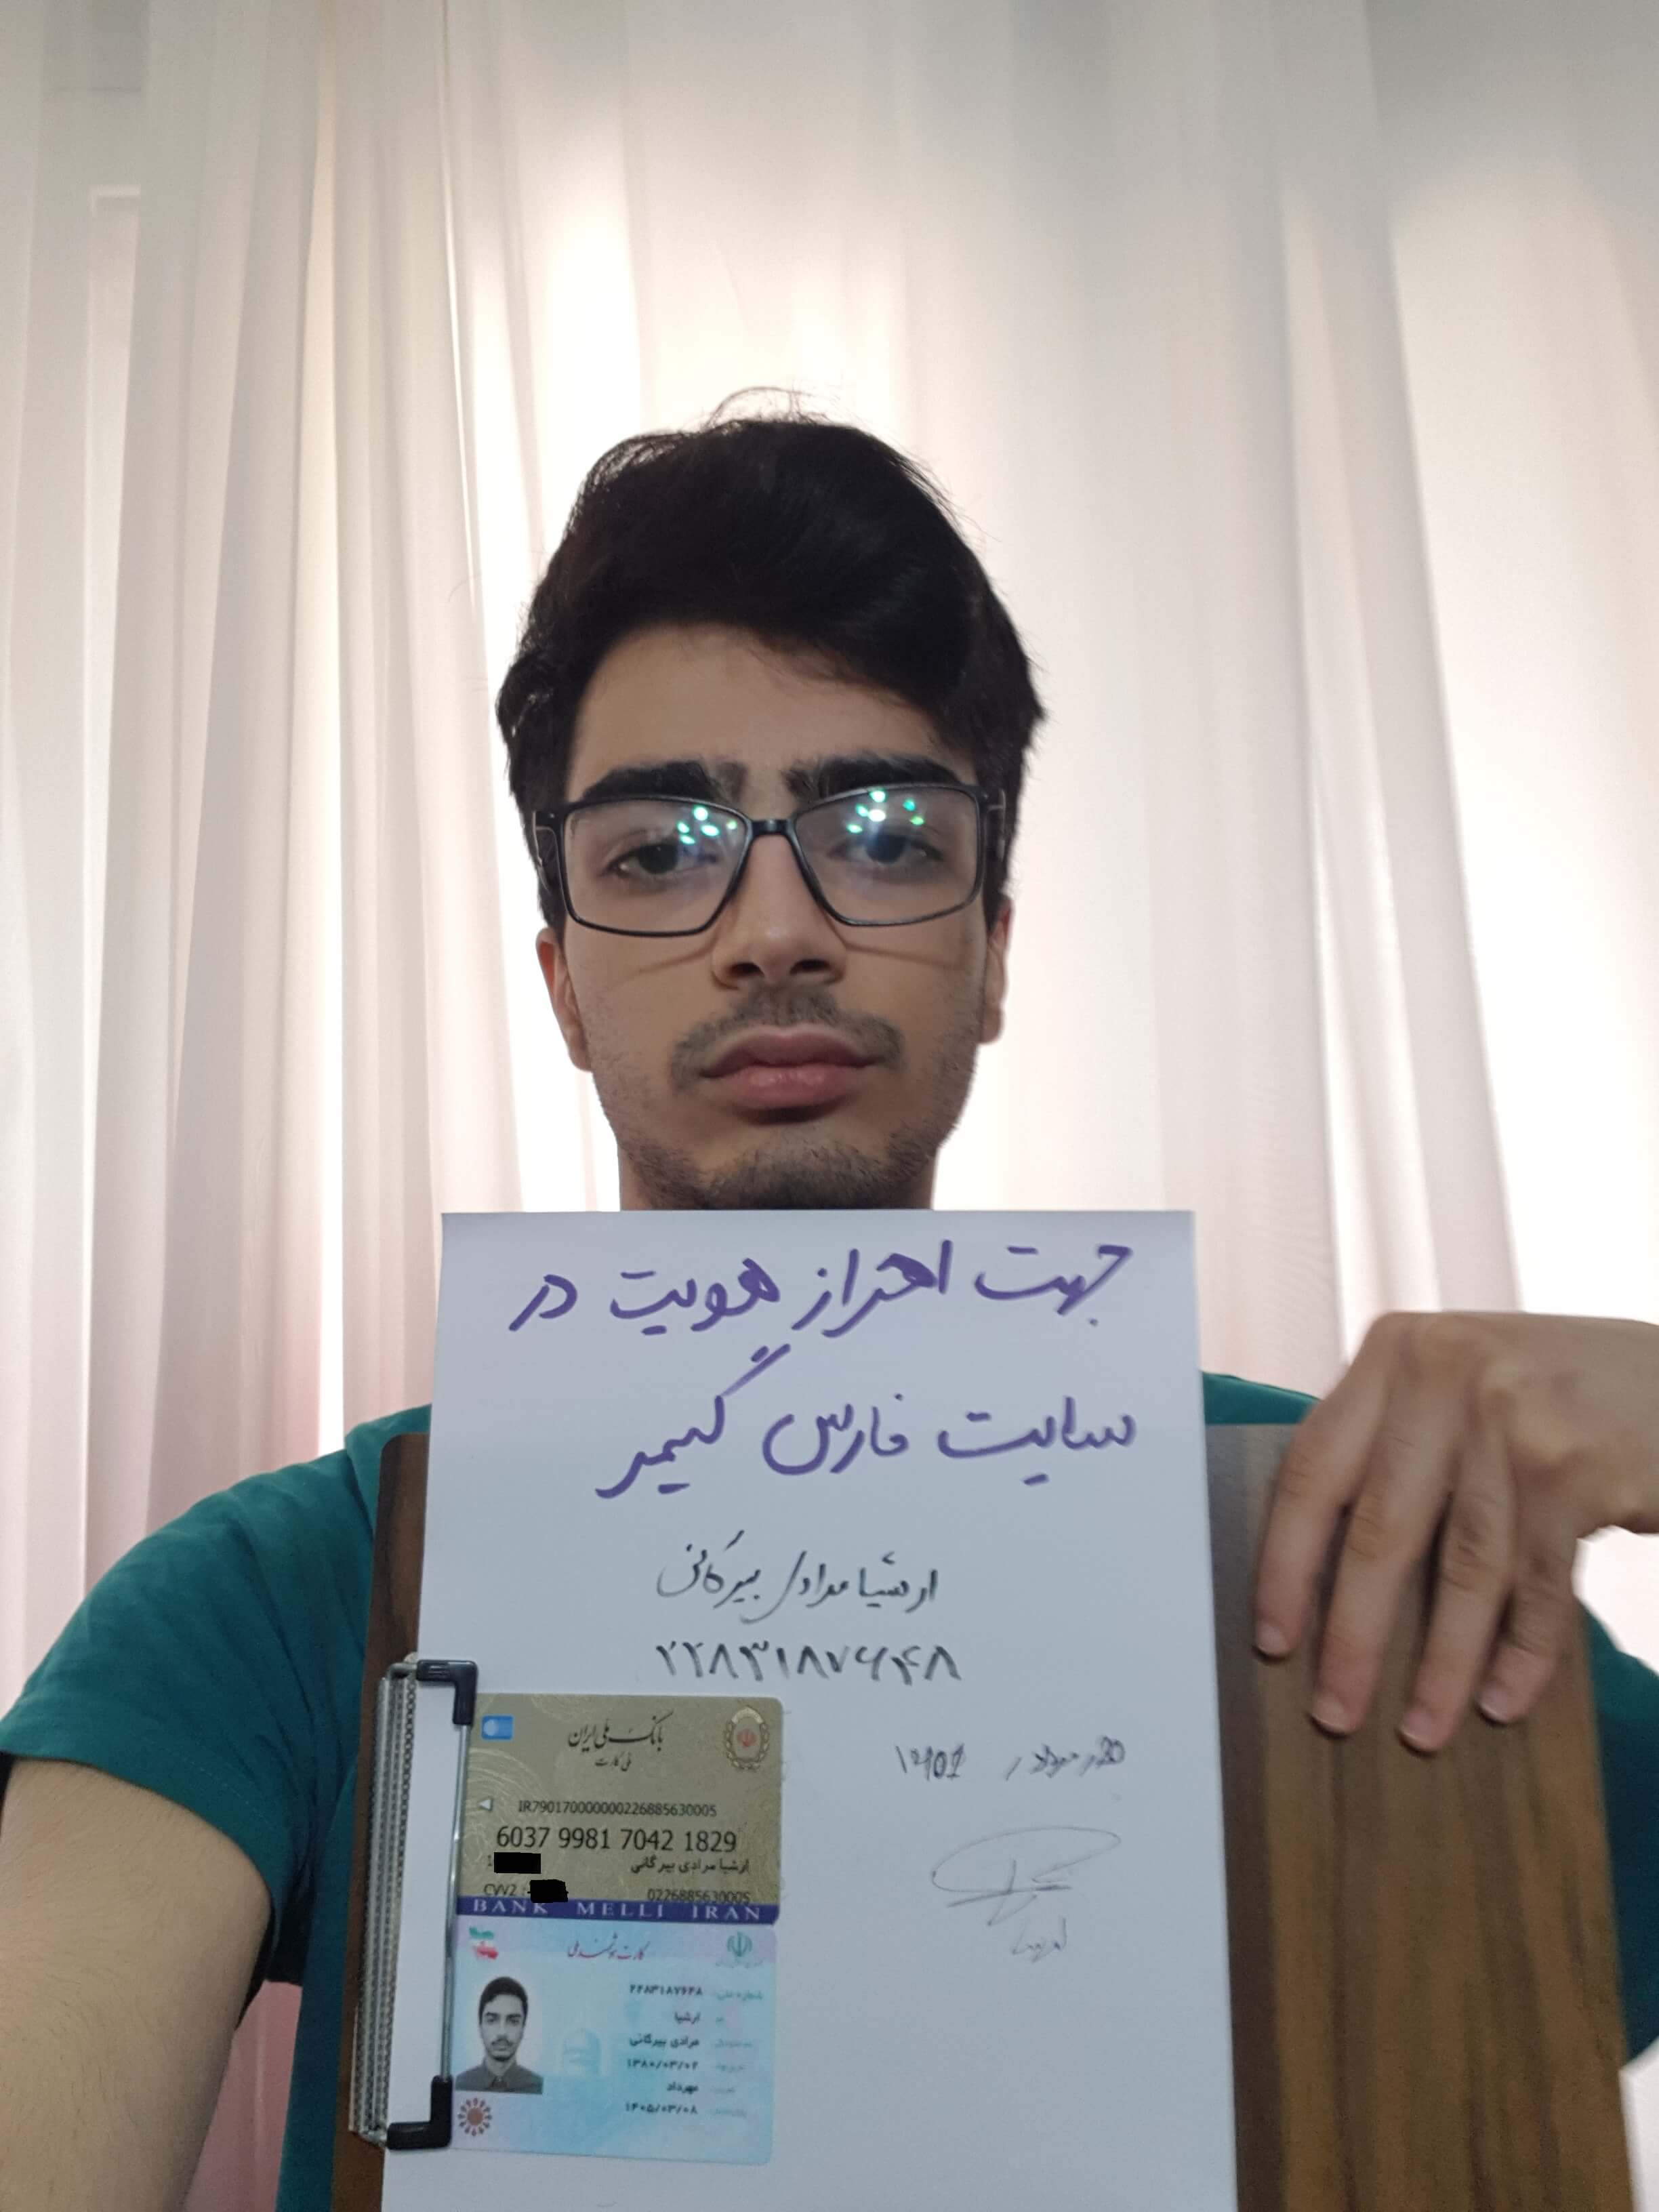 جهت احراز هویت در
سایت فارس گیمر
ارشیا مرادی بیرگانی
۲۲۸۳۱۸۷۶۴۸
مرداد
بانک ملی ایران
ملی کارت
IR790170000000226885630005
6037 9981 7042 1829
ارشیا مرادی بیرگانی
CVV2 :
0226885630005
BANK MELLI IRAN
کارت هوشمند ملی
شماره ملی: ۲۲۸۳۱۸۷۶۴۸
ارشیا
مرادی بیرگانی
۱۳۸۰/۰۳/۰۲
مهرداد
۱۴۰۵/۰۳/۰۸